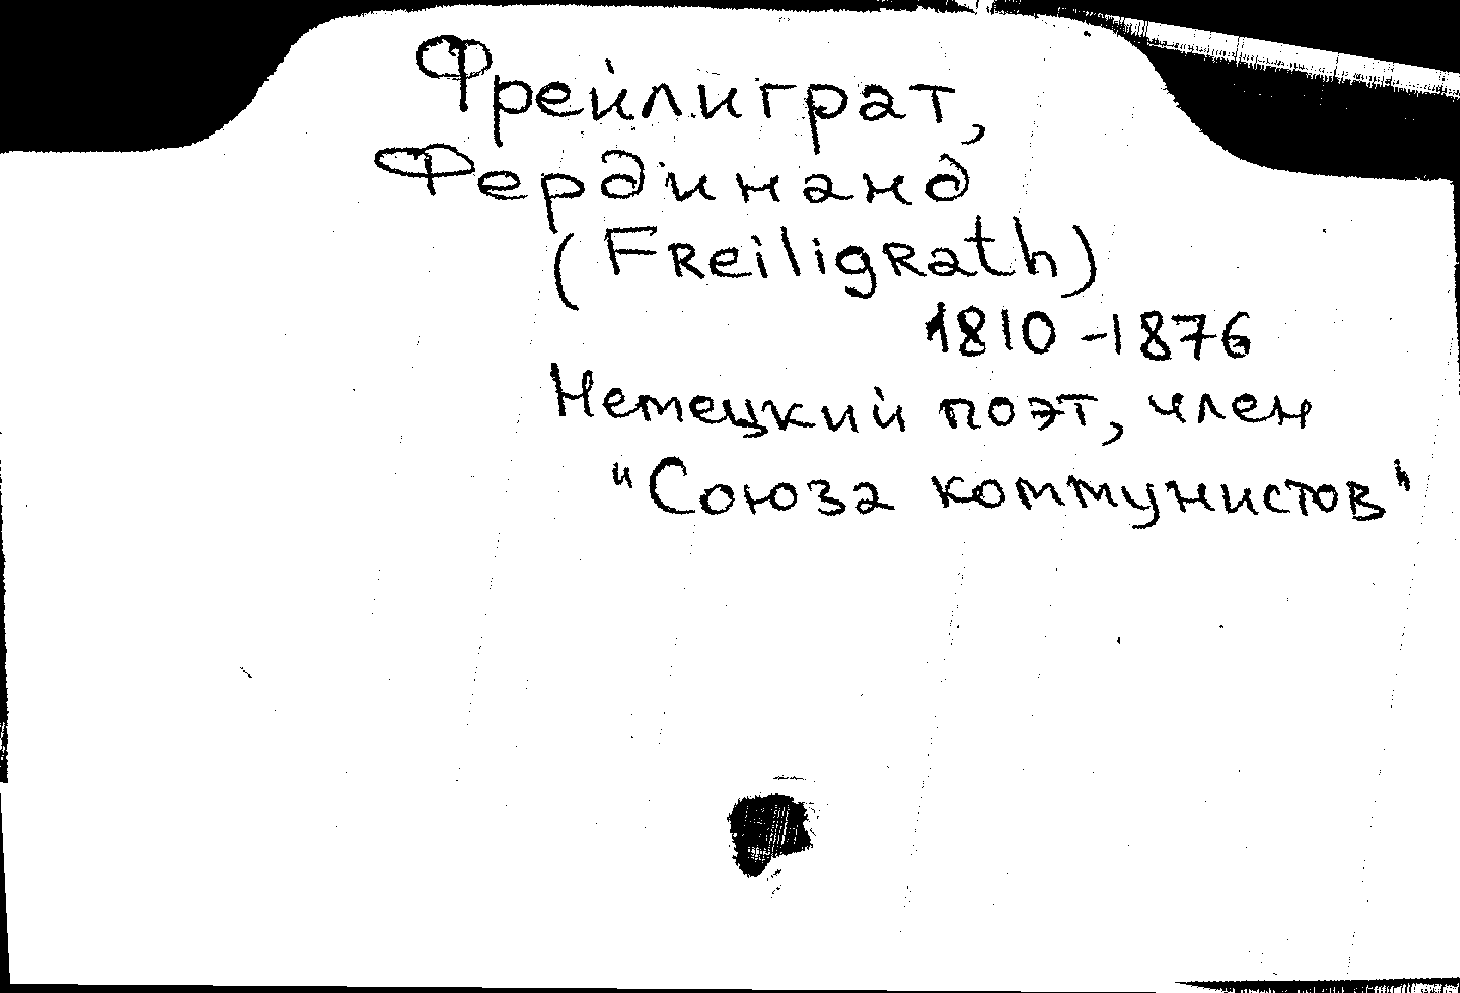 Фрейлиграт,
Фердинанд
(Freiligrath)
1810-1876
Немецкий поэт, член
"Союза коммунистов"